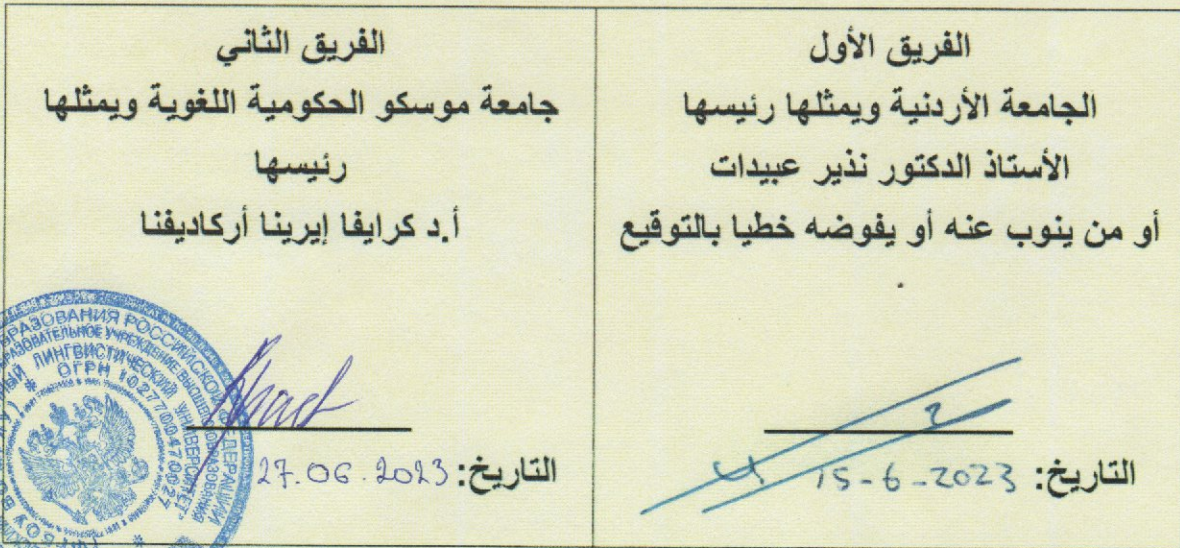 الفريق الأول
الجامعة الأردنية ويمثلها رئيسها
الأستاذ الدكتور نذير عبيدات
أو من ينوب عنه أو يفوضه خطيا بالتوقيع
التاريخ: 15-6-2023
الفريق الثاني
جامعة موسكو الحكومية اللغوية ويمثلها
رئيسها
أ.د كرايفا إيرينا أركاديفنا
التاريخ: 27.06.2023
РАЗОВАНИЯ РОССИЙСКОЙ ФЕДЕРАЦИИ
РАЗОВАТЕЛЬНОЕ УЧРЕЖДЕНИЕ ВЫСШЕГО ОБРАЗОВАНИЯ
НЫЙ ЛИНГВИСТИЧЕСКИЙ УНИВЕРСИТЕТ"
* ОГРН 1027700470027